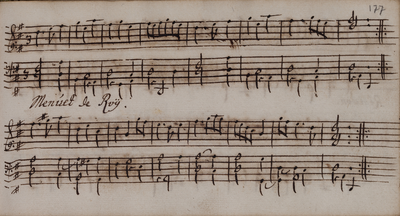 177
Menuet de Roÿ.